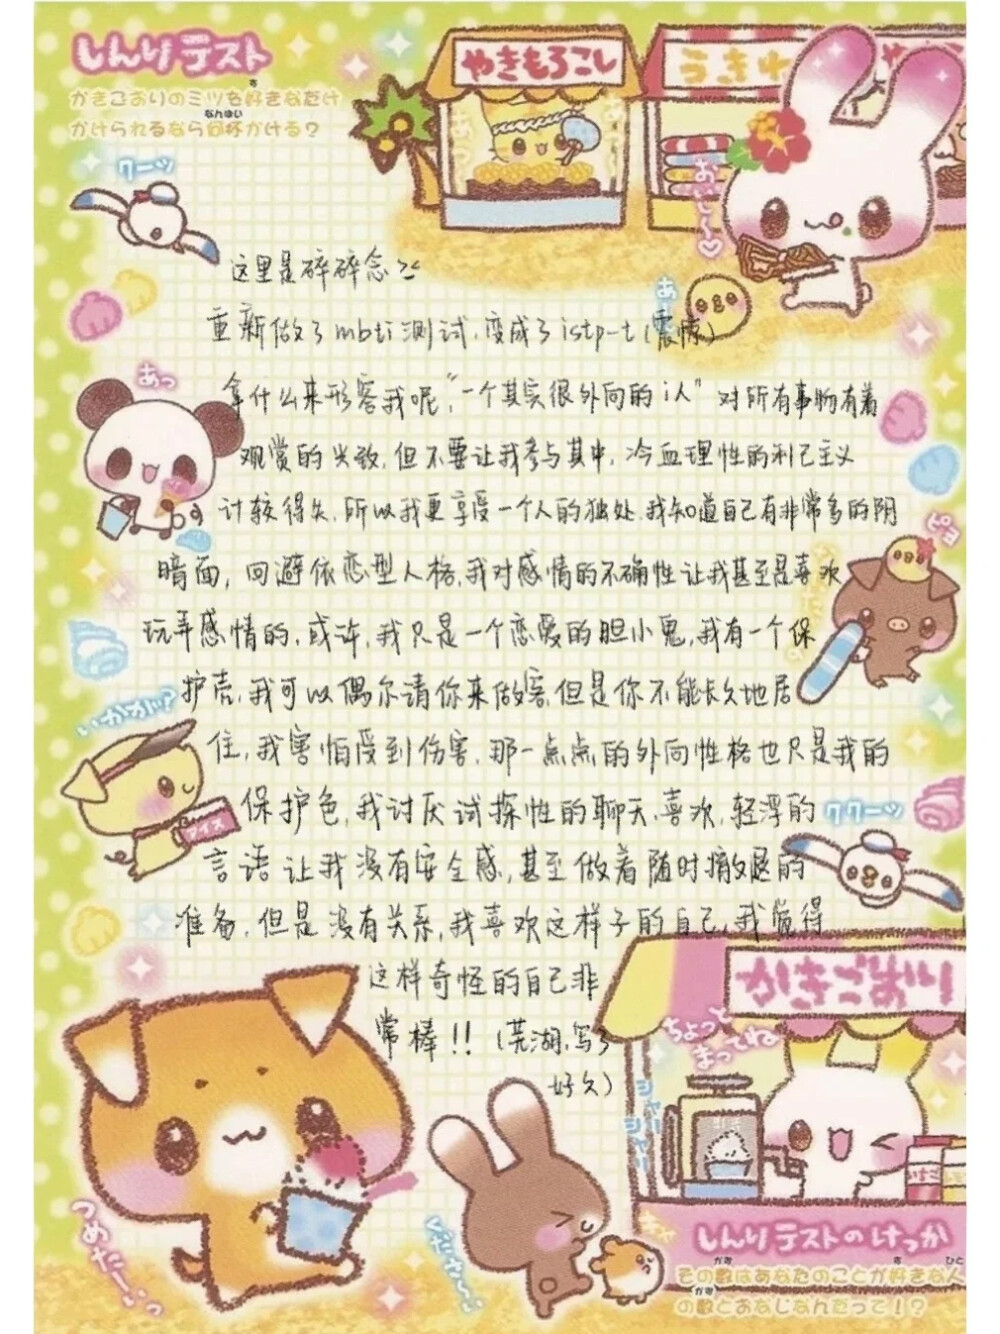 しんりテスト
かきごおりのミツを好きなだけ
かけられるなら何杯かける？
やきもろこし
うきわ
クーッ
おいし〜♡
あ
这里是碎碎念
重新做了mbti测试，变成了istp-t（震惊）
あっ
拿什么来形容我呢，“一个其实很外向的i人”对所有事物有着
观赏的兴致，但不要让我参与其中，冷血理性的利己主义
计较得失，所以我更享受一个人的独处，我知道自己有非常多的阴
ピヨ
暗面，回避依恋型人格，我对感情的不确性让我甚至是喜欢
玩弄感情的，或许，我只是一个恋爱的胆小鬼，我有一个保
护壳，我可以偶尔请你来做客，但是你不能长久地居
いかが？
住，我害怕受到伤害，那一点点的外向性格也只是我的
保护色，我讨厌试探性的聊天，喜欢，轻浮的
アイス
ククーッ
言语让我没有安全感，甚至做着随时撤退的
准备，但是没有关系，我喜欢这样子的自己，我觉得
这样奇怪的自己非
常棒！！（芜湖，写了
好久）
かきごおり
ちょっと
まっててね
シャリ
シャリ
つめたーいっ
くださ〜い
しんりテストのけっか
その数はあなたのことが好きな人
の数とおなじなんだって！？